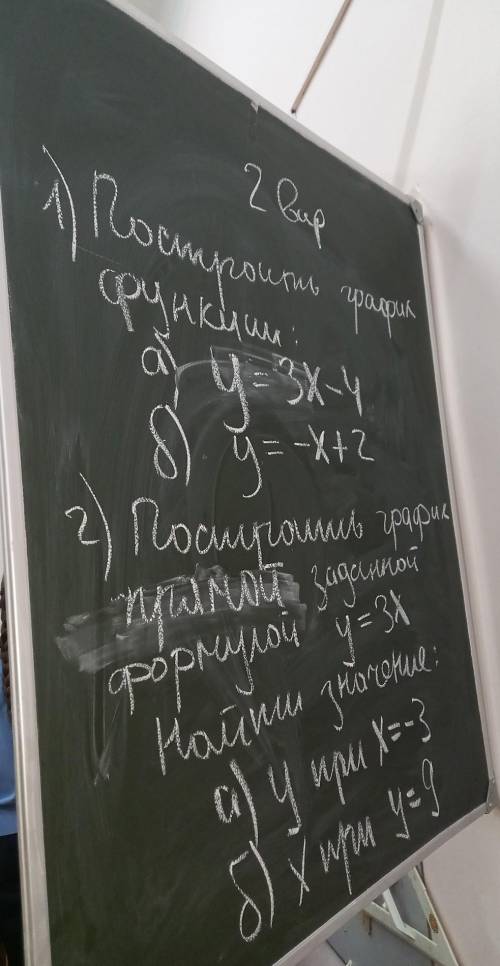 2 вар
1) Построить график
функции:
а) y=3x-4
б) y=-x+2
2) Построить график
прямой заданной
формулой y=3x
Найти значение:
а) y при x=-3
б) x при y=9